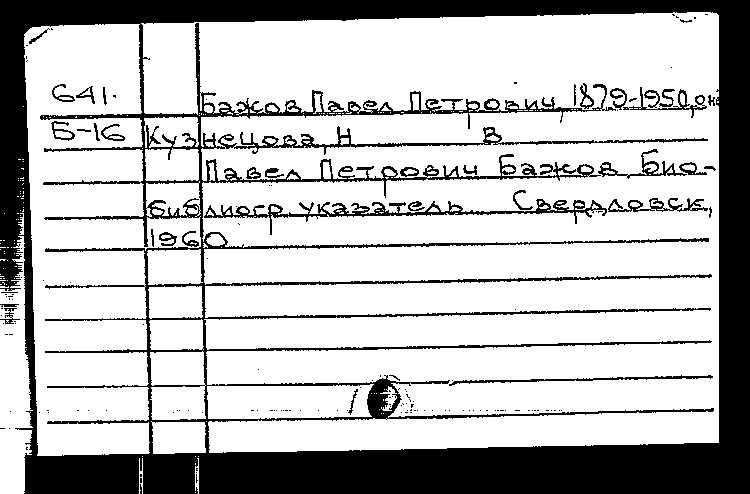 641.
Бажов, Павел Петрович, 1879-1950, о не
Б-16 Кузнецова, Н В
Павел Петрович Бажов. Био-
библиогр. указатель. Свердловск,
1960